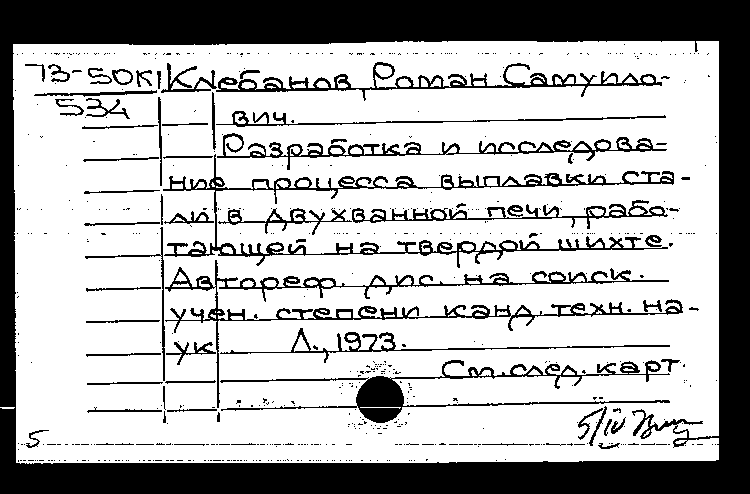 73-50К Клебанов, Роман Самуило-
534
вич.
Разработка и исследова=
ние процесса выплавки ста-
ли в двухванной печи, рабо-
тающей на твердой шихте.
Автореф. дис. на соиск.
учен. степени канд. техн. на-
ук. Л., 1973.
См. след. карт.
5/IV
5